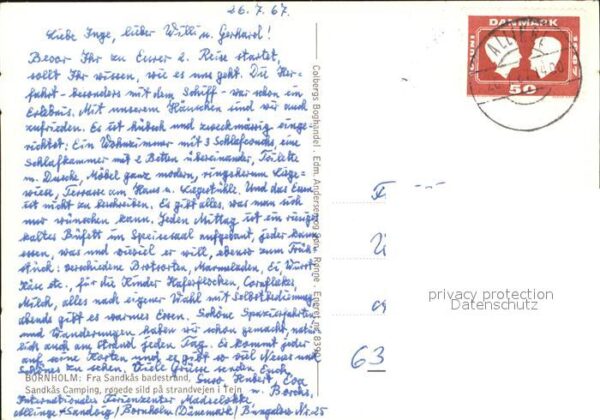 26.7.67.
Liebe Inge, lieber Willi u. Gerhard!
Bevor Ihr zu Eurer 2. Reise startet,
sollt Ihr wissen, wie es uns geht. Die Her-
fahrt - besonders mit dem Schiff - war schon ein
Erlebnis. Mit unserem Häuschen sind wir auch
zufrieden. Es ist hübsch und zweckmässig einge-
richtet: Ein Wohnzimmer mit 3 Schlafcouchs, eine
Schlafkammer mit 2 Betten übereinander, Toilette
u. Dusche, Möbel ganz modern, ringsherum Liege-
wiese, Terrasse am Haus u. Liegestühle. Und das Essen
ist nicht zu beschreiben. Es gibt alles, was man sich
nur wünschen kann. Jeden Mittag ist ein riesig
kaltes Büfett im Speisesaal aufgebaut, jeder kann
essen, was und wieviel er will, ebenso zum Früh-
stück: verschiedene Brotsorten, Marmeladen, Ei, Wurst
Käse etc., für die Kinder Haferflocken, Cornflakes,
Milch, alles nach eigener Wahl mit Selbstbedienung
abends gibt es warmes Essen. Schöne Spazierfahrten
und Wanderungen haben wir schon gemacht, natür-
lich auch am Strand jeden Tag. Es kommt jeder
auf seine Kosten und es gibt so viel Neues und
Schönes zu sehen. Viele Grüsse senden Euch
Eure Hubert, Eva
u. Borchs,
BORNHOLM: Fra Sandkås badestrand,
Sandkås Camping, røgede sild på strandvejen i Tejn
Internationales Ferienzenter
Allinge-Sandvig/Bornholm (Dänemark) Bungalow Nr. 25
Colbergs Boghandel . Edm. Andersen, Rønne . Eneret nr. 8390
DANMARK
JUNI 1967
50
ALLINGE
63
privacy protection
Datenschutz